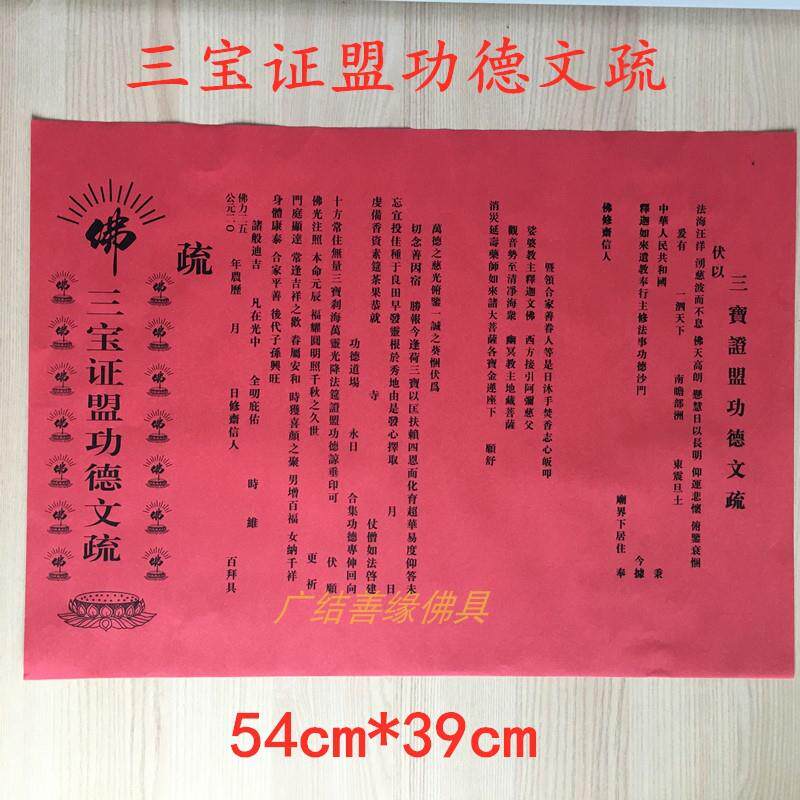 三宝证盟功德文疏
三寶證盟功德文疏
伏以
法海汪洋 湧慈波而不息 佛天高朗 懸慧日以長明 仰運悲懷 俯鑒衰悃
爰有 一泗天下 南瞻部洲 東震旦土
中華人民共和國 秉
釋迦如來遺教奉行主修法事功德沙門 今據
廟界下居住 奉
佛修齋信人
暨領合家善眷人等是日沐手焚香志心皈叩
娑婆教主釋迦文佛 西方接引阿彌慈父
觀音勢至清凈海衆 幽冥教主地藏菩薩
消災延壽藥師如來諸大菩薩各寶金蓮座下 願舒
萬德之慈光俯鑒一誠之葵悃伏爲
切念善因宿 勝報今逢荷三寶以匡扶賴四恩而化育超華易度仰答未
忘宣投佳種于良田早發靈根於秀地由是發心擇取 月 日
虔備香資素筵茶果恭就 寺 仗僧如法啓建
功德道場 永日 合集功德專伸回向
十方常住無量三寶刹海萬靈光降法筵證盟功德諒垂印可 伏願
佛光注照 本命元辰 福耀圓明照千秋之久世 更祈
門庭顯達 常逢吉祥之歡 眷屬安和 時獲喜顏之聚 男增百福 女納千祥
身體康泰 合家平善 後代子孫興旺
諸般迪吉 凡在光中 全叨庇佑 時維
佛力二五
公元二〇 年農歷 月 日修齋信人 百拜具
疏
佛
三宝证盟功德文疏
佛 佛
佛 佛
佛 佛
佛 佛
佛 佛
佛 佛
佛 佛
广结善缘佛具
54cm*39cm